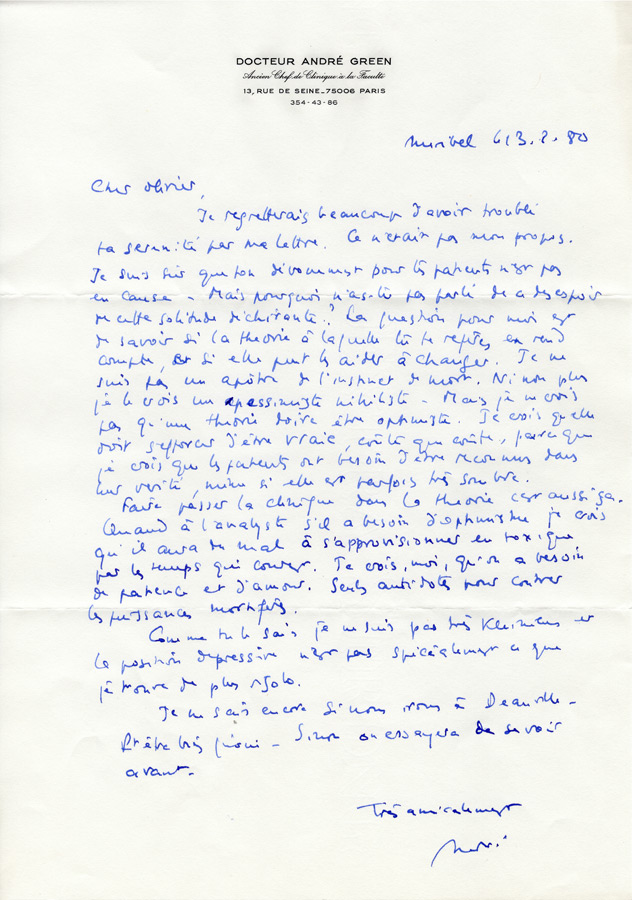 DOCTEUR ANDRÉ GREEN
Ancien Chef de Clinique à la Faculté
13, RUE DE SEINE_75006 PARIS
354-43-86
Cher Olivier,
Je regretterais beaucoup d'avoir troublé
ta serenité par ma lettre. Ce n'etait pas mon propos.
Je suis sûr que ton dévouement pour tes patients n'est pas
en cause - Mais pourquoi n'as-tu pas parlé de ce desespoir
de cette solitude déchirante? La question pour moi est
de savoir si la theorie à laquelle tu te repères en rend
compte, et si elle peut les aider à changer. Je ne
suis pas un apôtre de l'instinct de mort. Ni non plus
je le crois un pessimiste nihiliste - Mais je ne crois
pas qu'une théorie doive être optimiste. Je crois qu'elle
doit s'efforcer d'être vraie, coûte que coûte, parce que
je crois que les patients ont besoin d'être reconnus dans
leur verité, même si elle est parfois très sombre.
Faire passer la clinique dans la theorie c'est aussi ça.
Quand à l'analyste s'il a besoin d'optimisme je crois
qu'il aura du mal à s'approvisionner en toxique
par les temps qui courent. Je crois, moi, qu'on a besoin
de patience et d'amour. Seuls antidotes pour contrer
les puissances mortifères.
Comme tu le sais je ne suis pas très Kleinien et
la position depressive n'est pas spécialement ce que
je trouve de plus rigolo.
Je ne sais encore si nous irons à Deauville -
- Sinon on essayera de se voir
avant.
Très amicalement